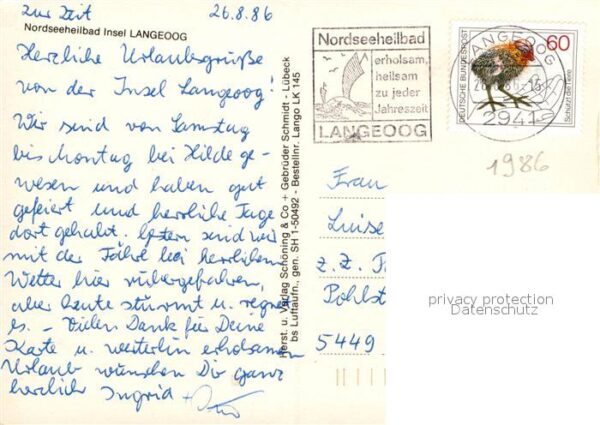 zur Zeit 26.8.86
Nordseeheilbad Insel LANGEOOG
Herzliche Urlaubsgrüße
von der Insel Langeoog!
Wir sind von Samstag
bis Montag bei Hilde ge-
wesen und haben gut
gefeiert und herrliche Tage
dort gehabt. Gestern sind wir
mit der Fähre bei herrlichem
Wetter hier rübergefahren,
aber heute stürmt u. regnet
es. – Vielen Dank für Deine
Karte u. weiterhin erholsamen
Urlaub wünschen Dir ganz
herzlich Ingrid +
Herst. u. Verlag Schöning & Co + Gebrüder Schmidt - Lübeck
bs Luftaufn., gen. SH 1-50492 - Bestellnr. Lango LK 145
Nordseeheilbad
erholsam,
heilsam
zu jeder
Jahreszeit
LANGEOOG
LANGEOOG
2941
DEUTSCHE BUNDESPOST
60
Schutz der Tiere
1986
Frau
Luise
z. Z.
Pohlst
5449
privacy protection
Datenschutz